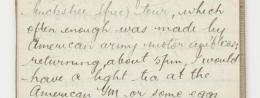 tour, which
often enough was made by
American army motor
returning, about 5pm, I would
have a light tea at the
American YM or some eggs